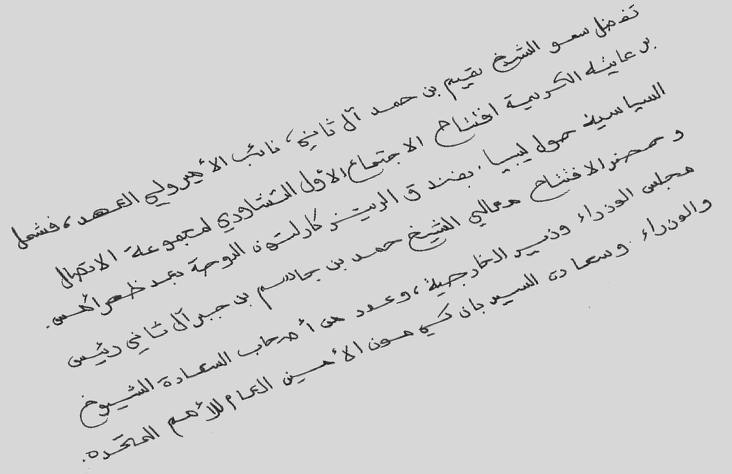 تفضل سمو الشيخ تميم بن حمد آل ثاني، نائب الأمير ولي العهد، فشمل
برعايته الكريمة افتتاح الاجتماع الأول التشاوري لمجموعة الاتصال
السياسية حول ليبيا. بفندق الريتز كارلتون الدوحة بعد ظهر أمس.
وحضر الافتتاح معالي الشيخ حمد بن جاسم بن جبر آل ثاني رئيس
مجلس الوزراء وزير الخارجية، وعدد من أصحاب السعادة الشيوخ
والوزراء. وسعادة السيد بان كي مون الأمين العام للأمم المتحدة.